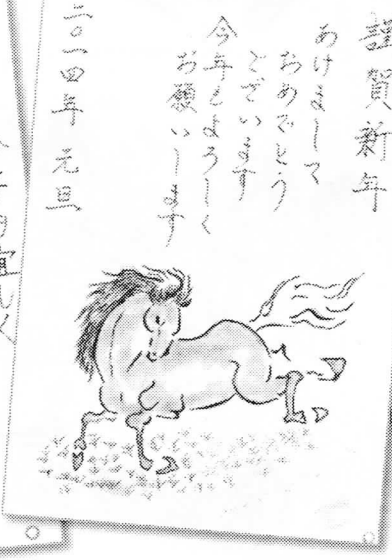 謹賀新年
あけまして
おめでとう
ございます
今年もよろしく
お願いします
二〇一四年 元旦
宜しく